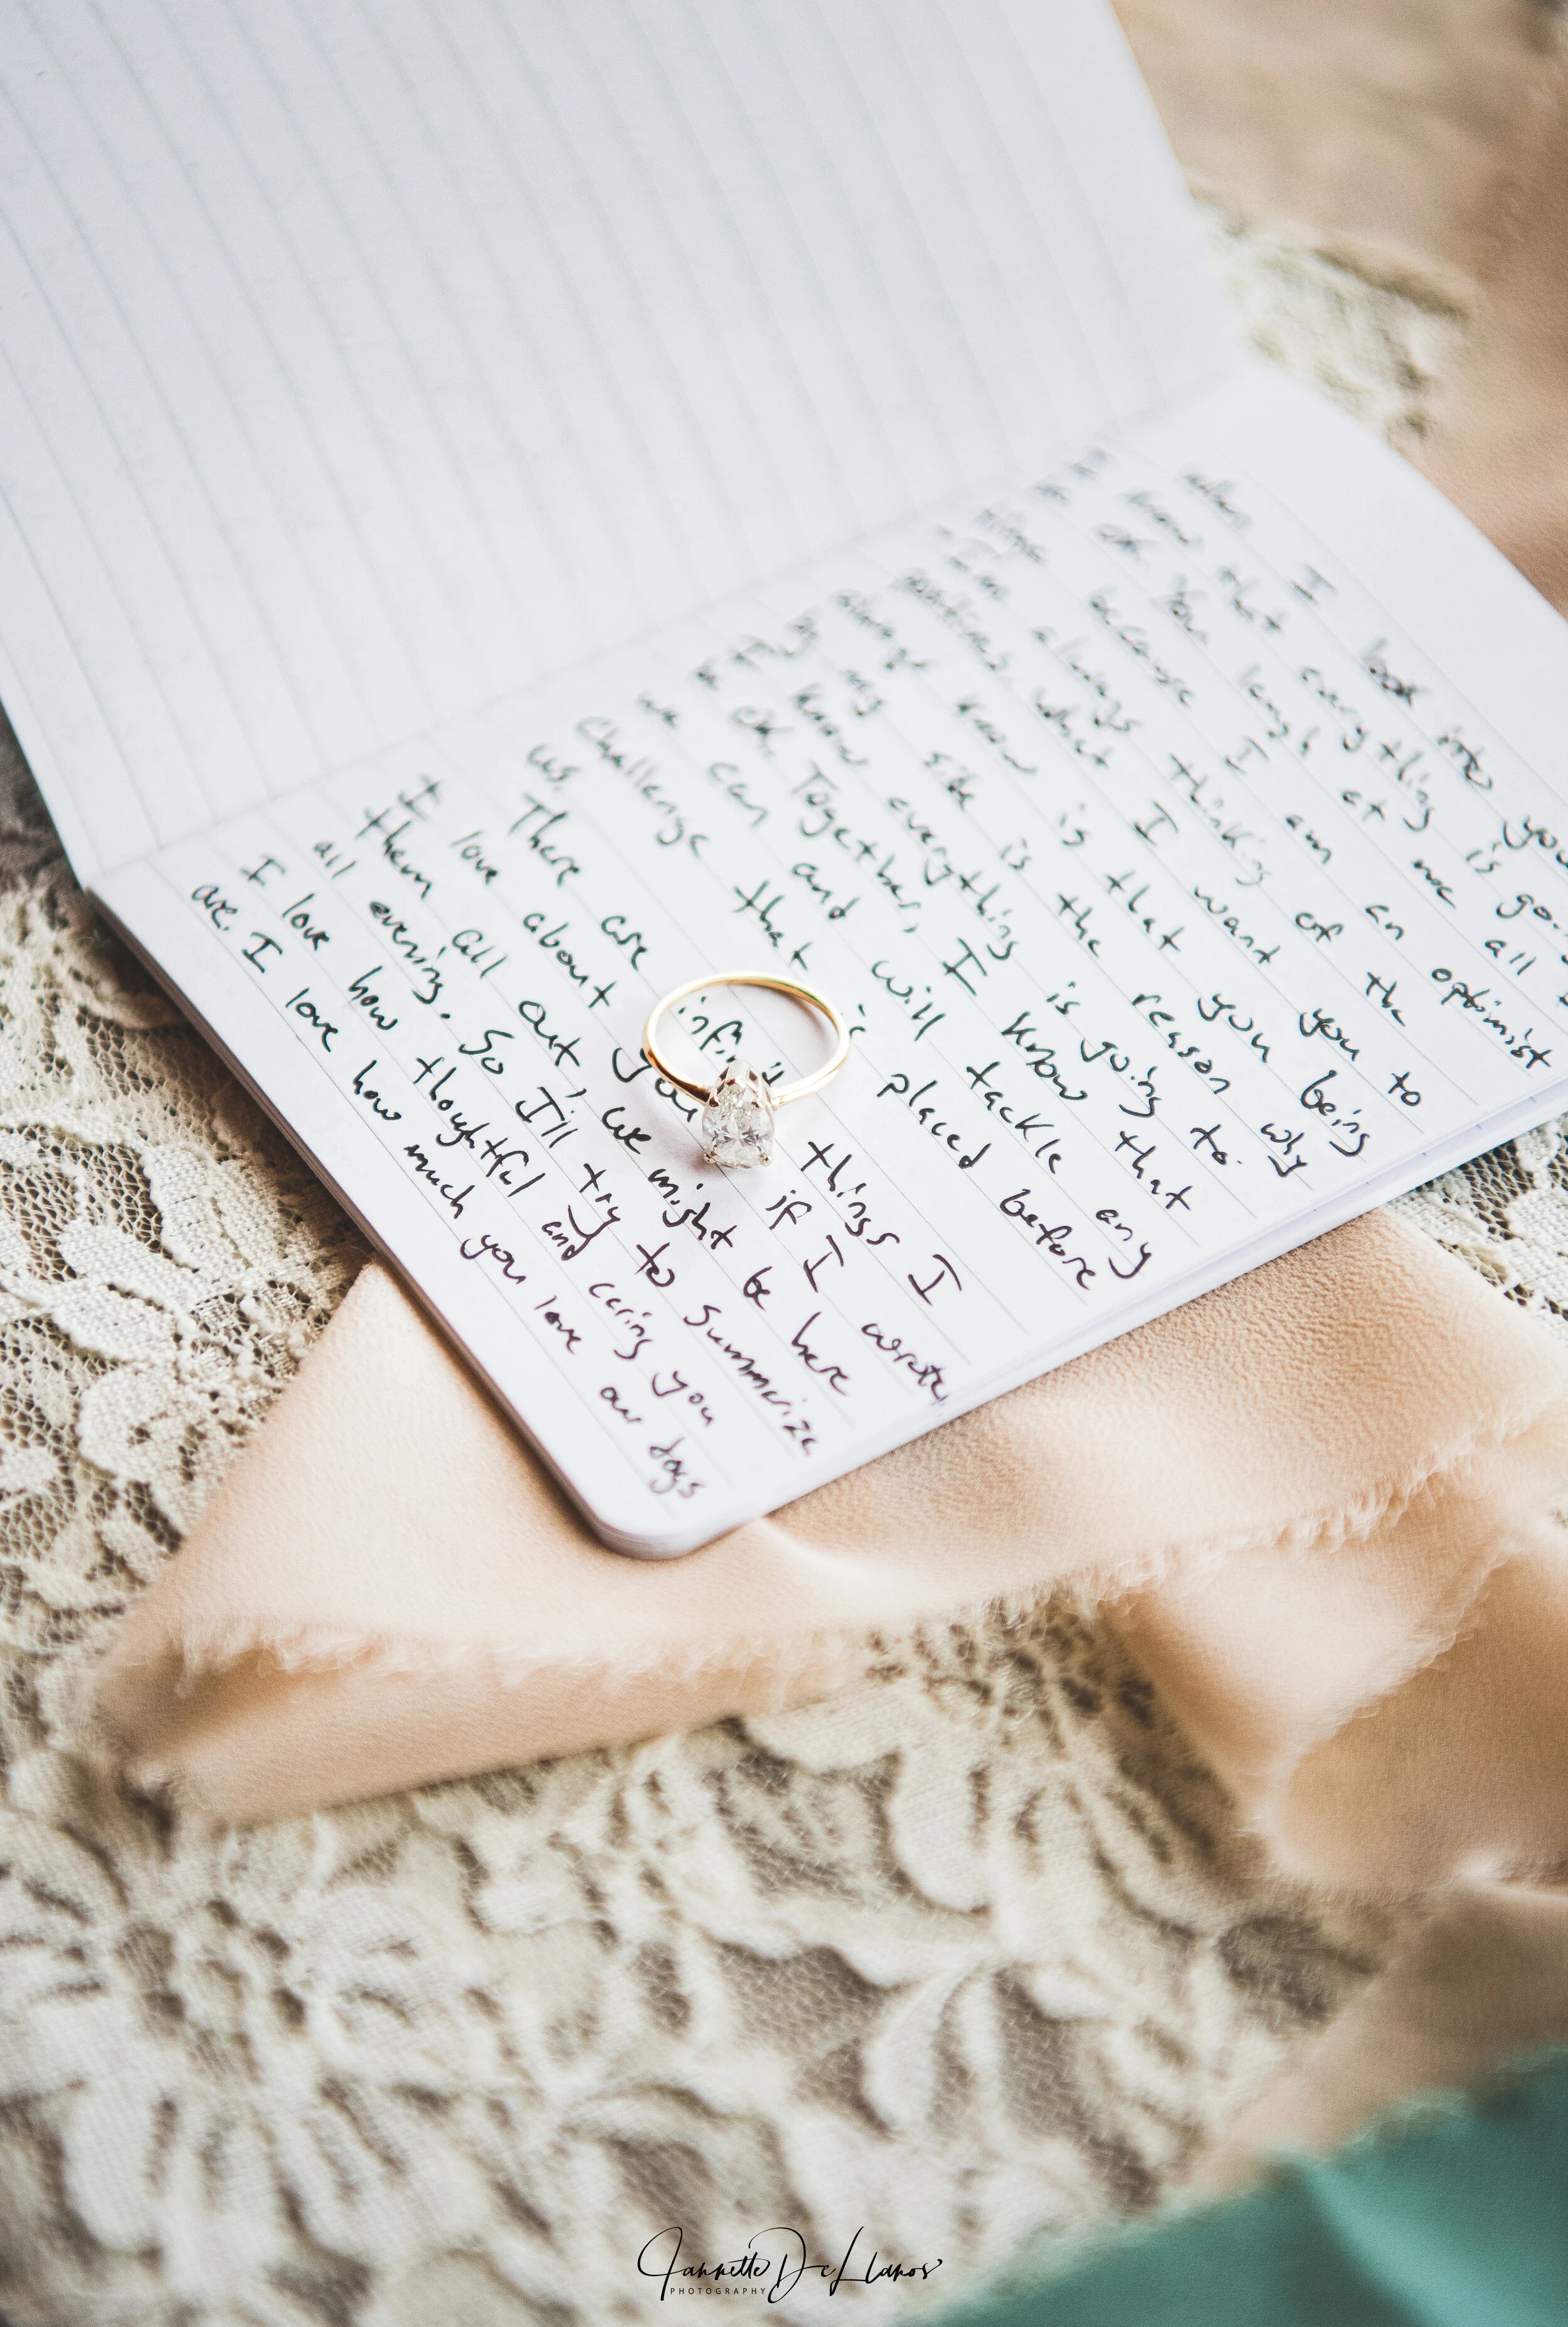 When I look into you
know that everything is go
ok. You laugh at me all
time because I am an optimist
I'm always thinking of the
positives. What I want you to
always know is that you being
by my side is the reason why
I know everything is going to
be ok. Together, I know that
we can and will tackle any
challenge that is placed before
us.
There are infinit things I
I love about you if I wrote
them all out, we might be here
all evening. So I'll try to summarize
I love how thoughtful and caring you
are. I love how much you love our dogs
Jannette De Llanos
PHOTOGRAPHY